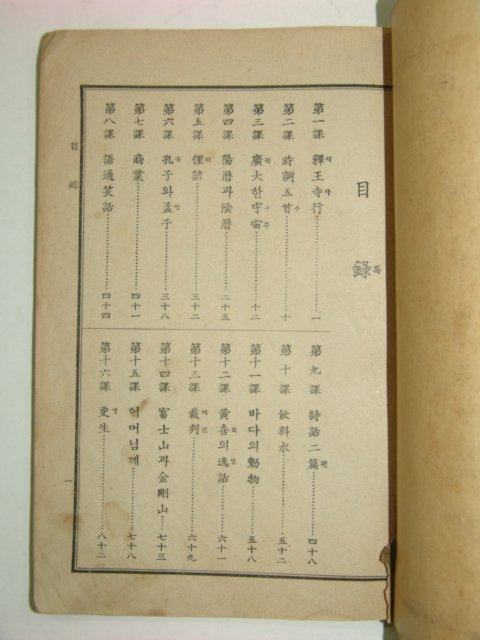 目錄
第一課 釋王寺行 一
第二課 時調五首 十
第三課 廣大한宇宙 十二
第四課 陽曆과陰曆 二十五
第五課 俚諺 三十二
第六課 孔子와孟子 三十八
第七課 商業 四十一
第八課 語通笑話 四十四
第九課 詩話二篇 四十八
第十課 飮料水 五十二
第十一課 바다의動物 五十八
第十二課 黃喜의逸話 六十一
第十三課 裁判 六十九
第十四課 富士山과金剛山 七十三
第十五課 어머님께 七十八
第十六課 更生 八十二
目錄
一